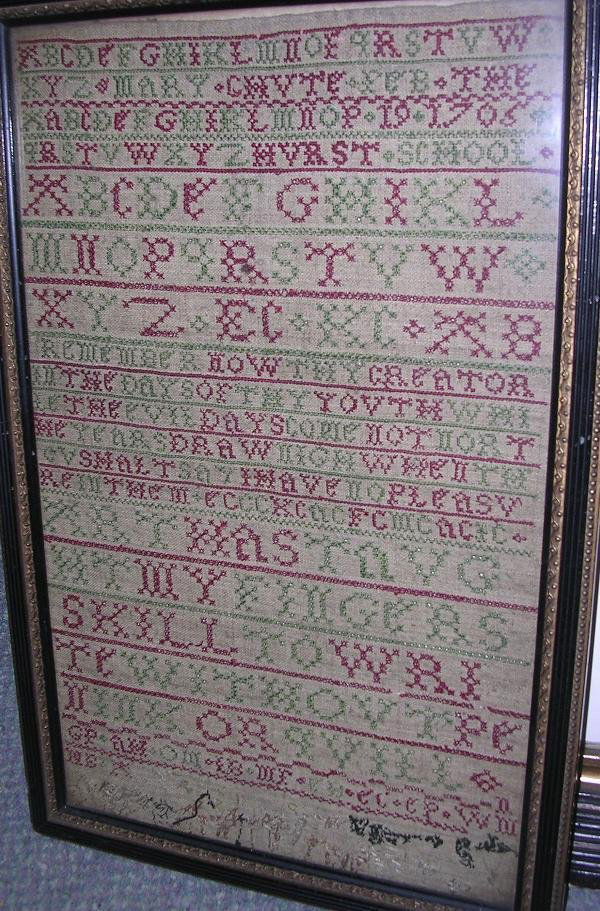 ABCDEFGHIKLMNOPQRSTVW
XYZ MARY · CHVTE · FEB · THE
ABCDEFGHIKLMNOP · 19 · 1705
QRSTVWXYZ HVRST · SCHOOL ·
ABCDEFGHIKL
MNOPQRSTVW
XYZ · EC · KC · AB
REMEMBER NOW THY CREATOR
IN THE DAYS OF THY YOVTH WHI
LE THE EVIL DAYS COME NOT NOR T
HE YEARS DRAW NIGH WHEN TH
OV SHALT SAY I HAVE NO PLEASV
RE IN THEM · EC CC KC AC FC MC AC IC ·
ART HAS TAVG
HT MY FINGERS
SKILL TO WRI
TE WITHOVT PE
N INK OR QVILL
GP · AM · OM · IG · MF · EC · EP · WM